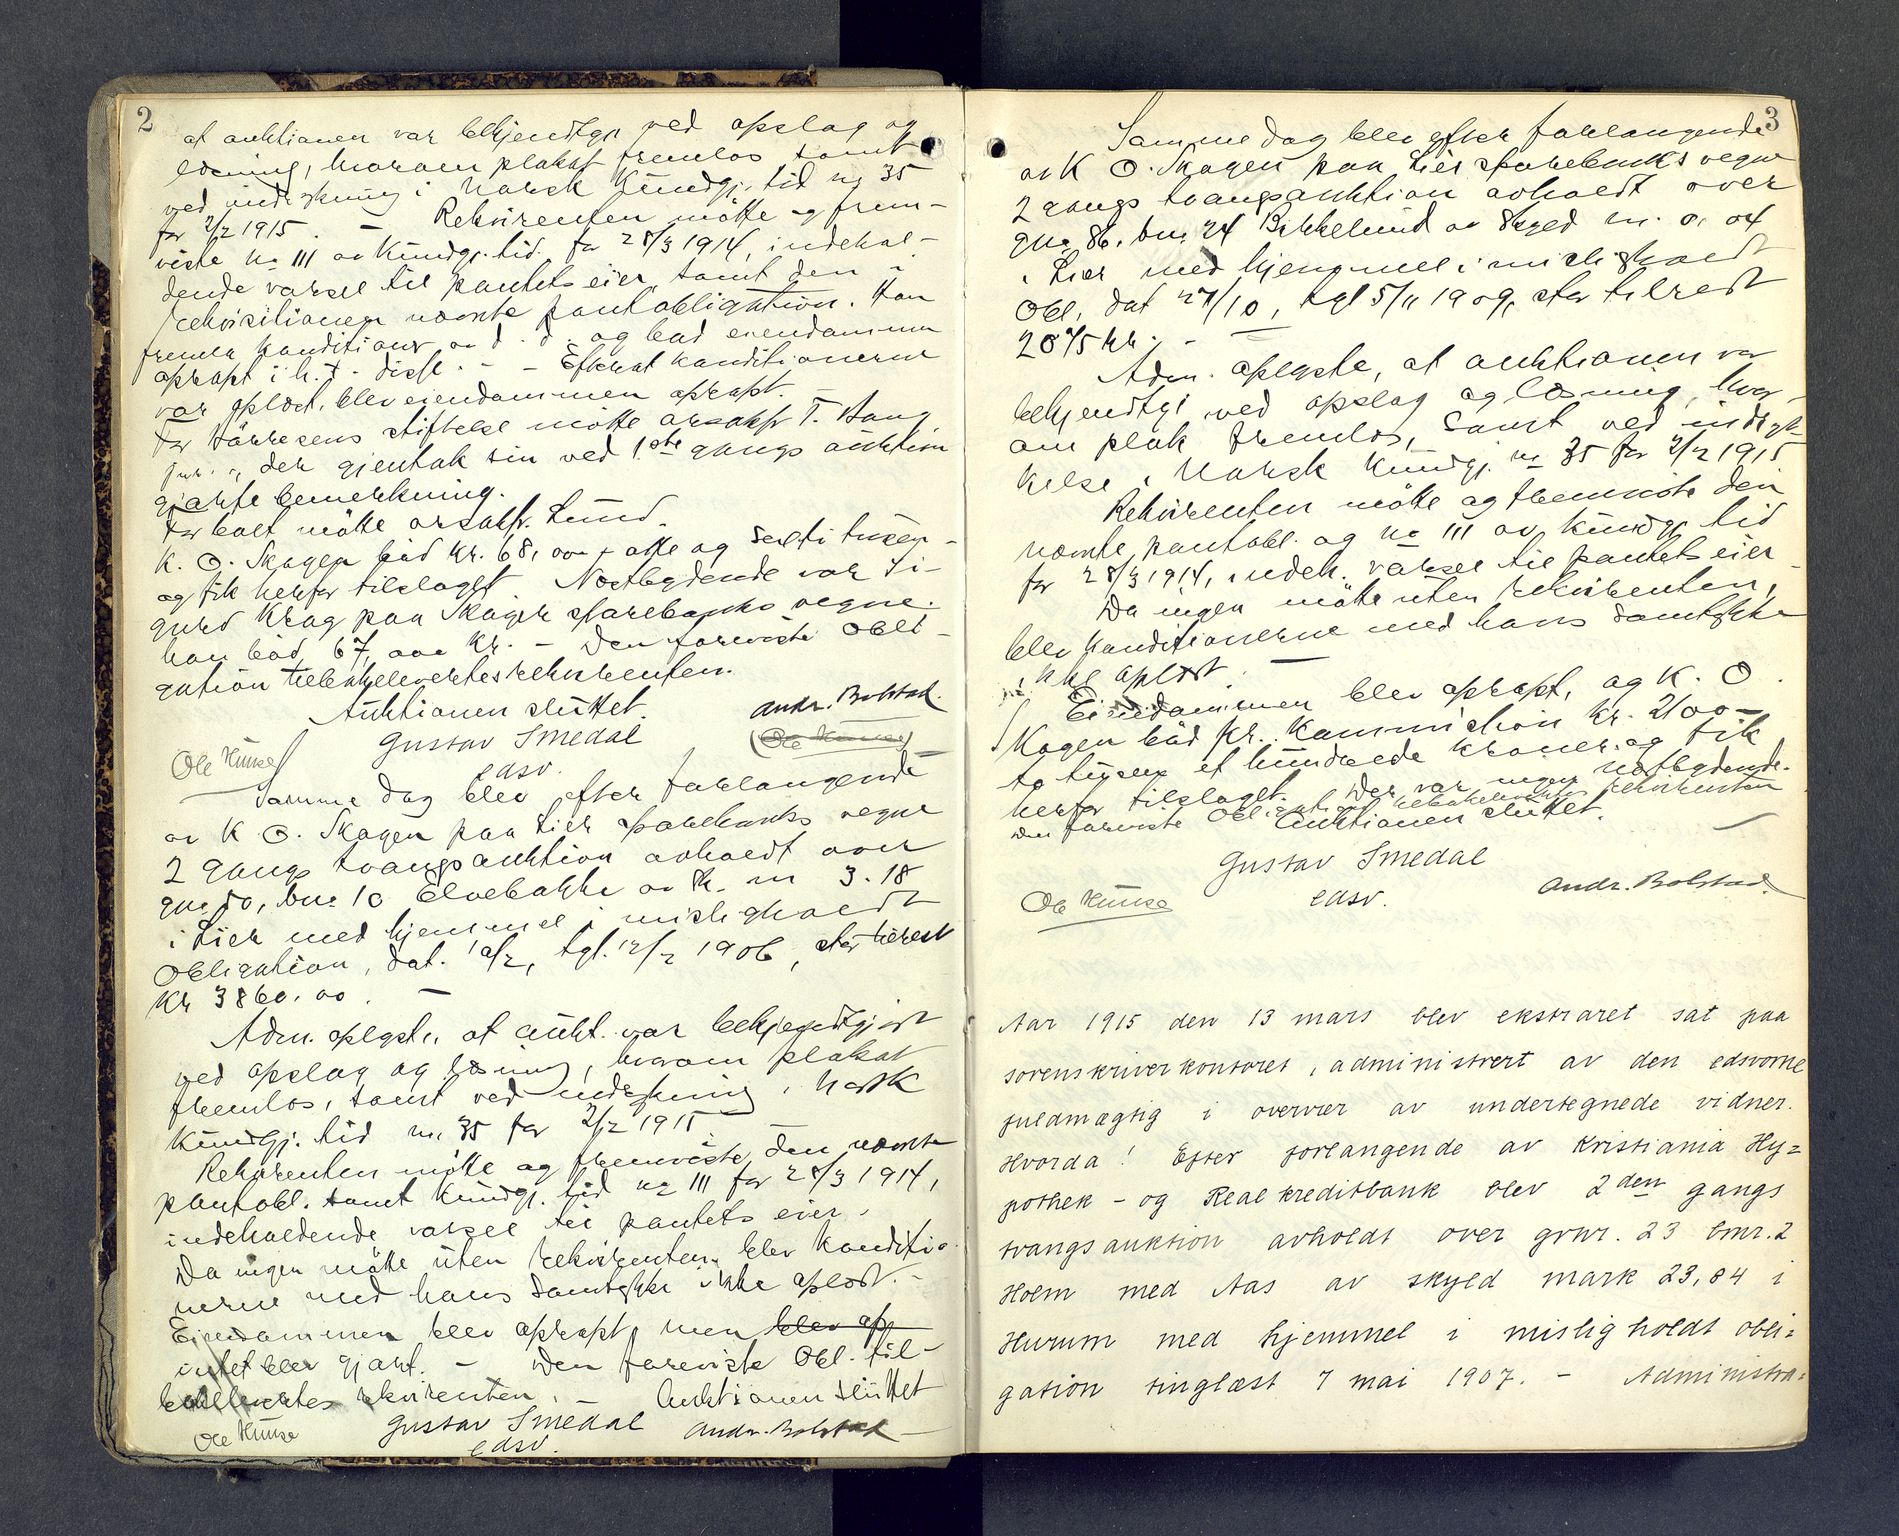 2
at auktionen var bekjendtgj. ved opslag og
læsning, hvorom plakat fremlos samt
ved indrykning i Norsk Kundgj. tid no 35
for 2/2 1915. – Rekvirenten møtte og frem-
viste no 111 av Kundgj. tid. for 28/3 1914, indehol-
dende varsel til pantets eier samt den i
rekvisitionen nævnte pantobligation. Han
freml. konditioner og bad eiendommen
opraapt i h. t. disse. – – Efterat konditionerne
var oplæst, blev eiendommen opraapt.
For stiftelse møtte orsakfr. T. Haug
jnr., der gjentok sin ved 1ste gangs auktion
gjorte bemerkning.
For boet møtte orsakfr. Lund.
K. O. Skagen bød kr. 68,000 – otte og seksti tusen –
og fik herfor tilslaget. Næstbydende var Si-
gurd Krag paa Skoger sparebanks vegne.
han bød 67,000 kr. – Den foreviste obli-
gation tilbakelevertes rekvirenten.
Auktionen sluttet.
Andr. Bolstad.
Gustav Smedal
(Ole Hunse)
Ole Hunse
edsv.
Samme dag blev efter forlangende
av K. O. Skagen paa Lier sparebanks vegne
2 gangs tvangsauktion avholdt over
gno 50, bno 10 Elvebakke av sk. m 3.18
i Lier med hjemmel i misligholdt
Obligation, dat. 10/2, tgl. 12/2 1906, stor tilrest
Kr 3860.00. –
Adm. oplyste, at aukt. var bekjendtgjort
ved opslag og læsning, hvorom plakat
fremlos, samt ved indrykning i Norsk
Kundgj. tid no. 35 for 2/2 1915
Rekvirenten møtte og fremviste den nævnte
pantobl. samt Kundgj. tid no 111 for 28/3 1914,
indeholdende varsel til pantets eier.
Da ingen møtte uten rekvirenten, blev konditio-
nerne med hans samtykke ikke oplæst. –
Eiendommen blev opraapt, men blev op
intet blev gjort. – Den foreviste Obl. til-
bakelevertes rekvirenten. Auktionen sluttet
Ole Hunse Gustav Smedal Andr. Bolstad
edsv.
3
Samme dag blev efter forlangende
av K. O. Skagen paa Lier sparebanks vegne
2 gangs tvangsauktion avholdt over
gno 86, bno 24 Bekkelund av skyld m. 0.04
i Lier med hjemmel i misligholdt
Obl. dat 27/10, tgl 5/11 1909, stor tilrest
2075 kr. –
Adm. oplyste, at auktionen var
bekjendtgj. ved opslag og læsning, hvor-
om plak fremlos, samt ved indryk-
kelse i Norsk Kundgj. no 35 for 2/2 1915
Rekvirenten møtte og fremviste den
nævnte pantobl. og no 111 av Kundgj. tid
for 28/3 1914, indeh. varsel til pantets eier
Da ingen møtte uten rekvirenten,
blev konditionerne med hans samtykke
ikke oplæst. –
Eiendommen blev opraapt, og K. O.
Skagen bød pr. kommission kr. 2100 –
to tusen et hundrede kroner – og fik
herfor tilslaget. Der var ingen næstbydende.
Den foreviste Obligation tilbakelevertes rekvirenten
Auktionen sluttet.
Gustav Smedal
Andr. Bolstad.
Ole Hunse
edsv.
Aar 1915 den 13 mars blev ekstraret sat paa
sorenskriverkontoret, administrert av den edsvorne
fuldmægtig i overvær av undertegnede vidner.
Hvorda! Efter forlangende av Kristiania Hy=
pothek – og Realkreditbank blev 2den gangs
tvangsauktion avholdt over grnr. 23 bnr. 2
Holm med Aas av skyld mark 23,84 i
Hurum med hjemmel i misligholdt obli=
gation tinglæst 7 mai 1907. – Administra=